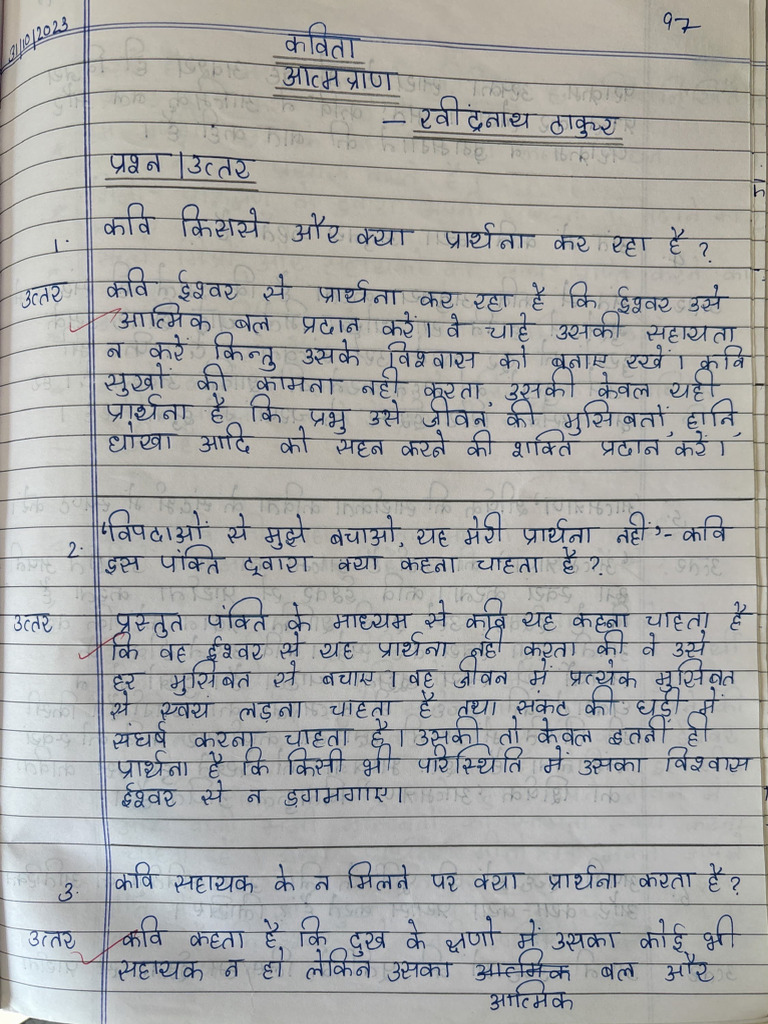 31/10/2023
97
कविता
आत्मत्राण
– रवींद्रनाथ ठाकुर
प्रश्न / उत्तर
1. कवि किससे और क्या प्रार्थना कर रहा है ?
उत्तर कवि ईश्वर से प्रार्थना कर रहा है कि ईश्वर उसे
आत्मिक बल प्रदान करें। वे चाहे उसकी सहायता
न करें किन्तु उसके विश्वास को बनाए रखें। कवि
सुखों की कामना नहीं करता, उसकी केवल यही
प्रार्थना है कि प्रभु उसे जीवन की मुसिबतों, हानि,
धोखा आदि को सहन करने की शक्ति प्रदान करें।
2. 'विपदाओं से मुझे बचाओ, यह मेरी प्रार्थना नहीं'- कवि
इस पंक्ति द्वारा क्या कहना चाहता है ?
उत्तर प्रस्तुत पंक्ति के माध्यम से कवि यह कहना चाहता है
कि वह ईश्वर से यह प्रार्थना नहीं करता की वे उसे
हर मुसिबत से बचाए। वह जीवन में प्रत्येक मुसिबत
से स्वयं लड़ना चाहता है तथा संकट की घड़ी में
संघर्ष करना चाहता है। उसकी तो केवल इतनी ही
प्रार्थना है कि किसी भी परिस्थिति में उसका विश्वास
ईश्वर से न डगमगाए।
3. कवि सहायक के न मिलने पर क्या प्रार्थना करता है ?
उत्तर कवि कहता है कि दुख के क्षणों में उसका कोई भी
सहायक न हो लेकिन उसका आत्मिक बल और
आत्मिक